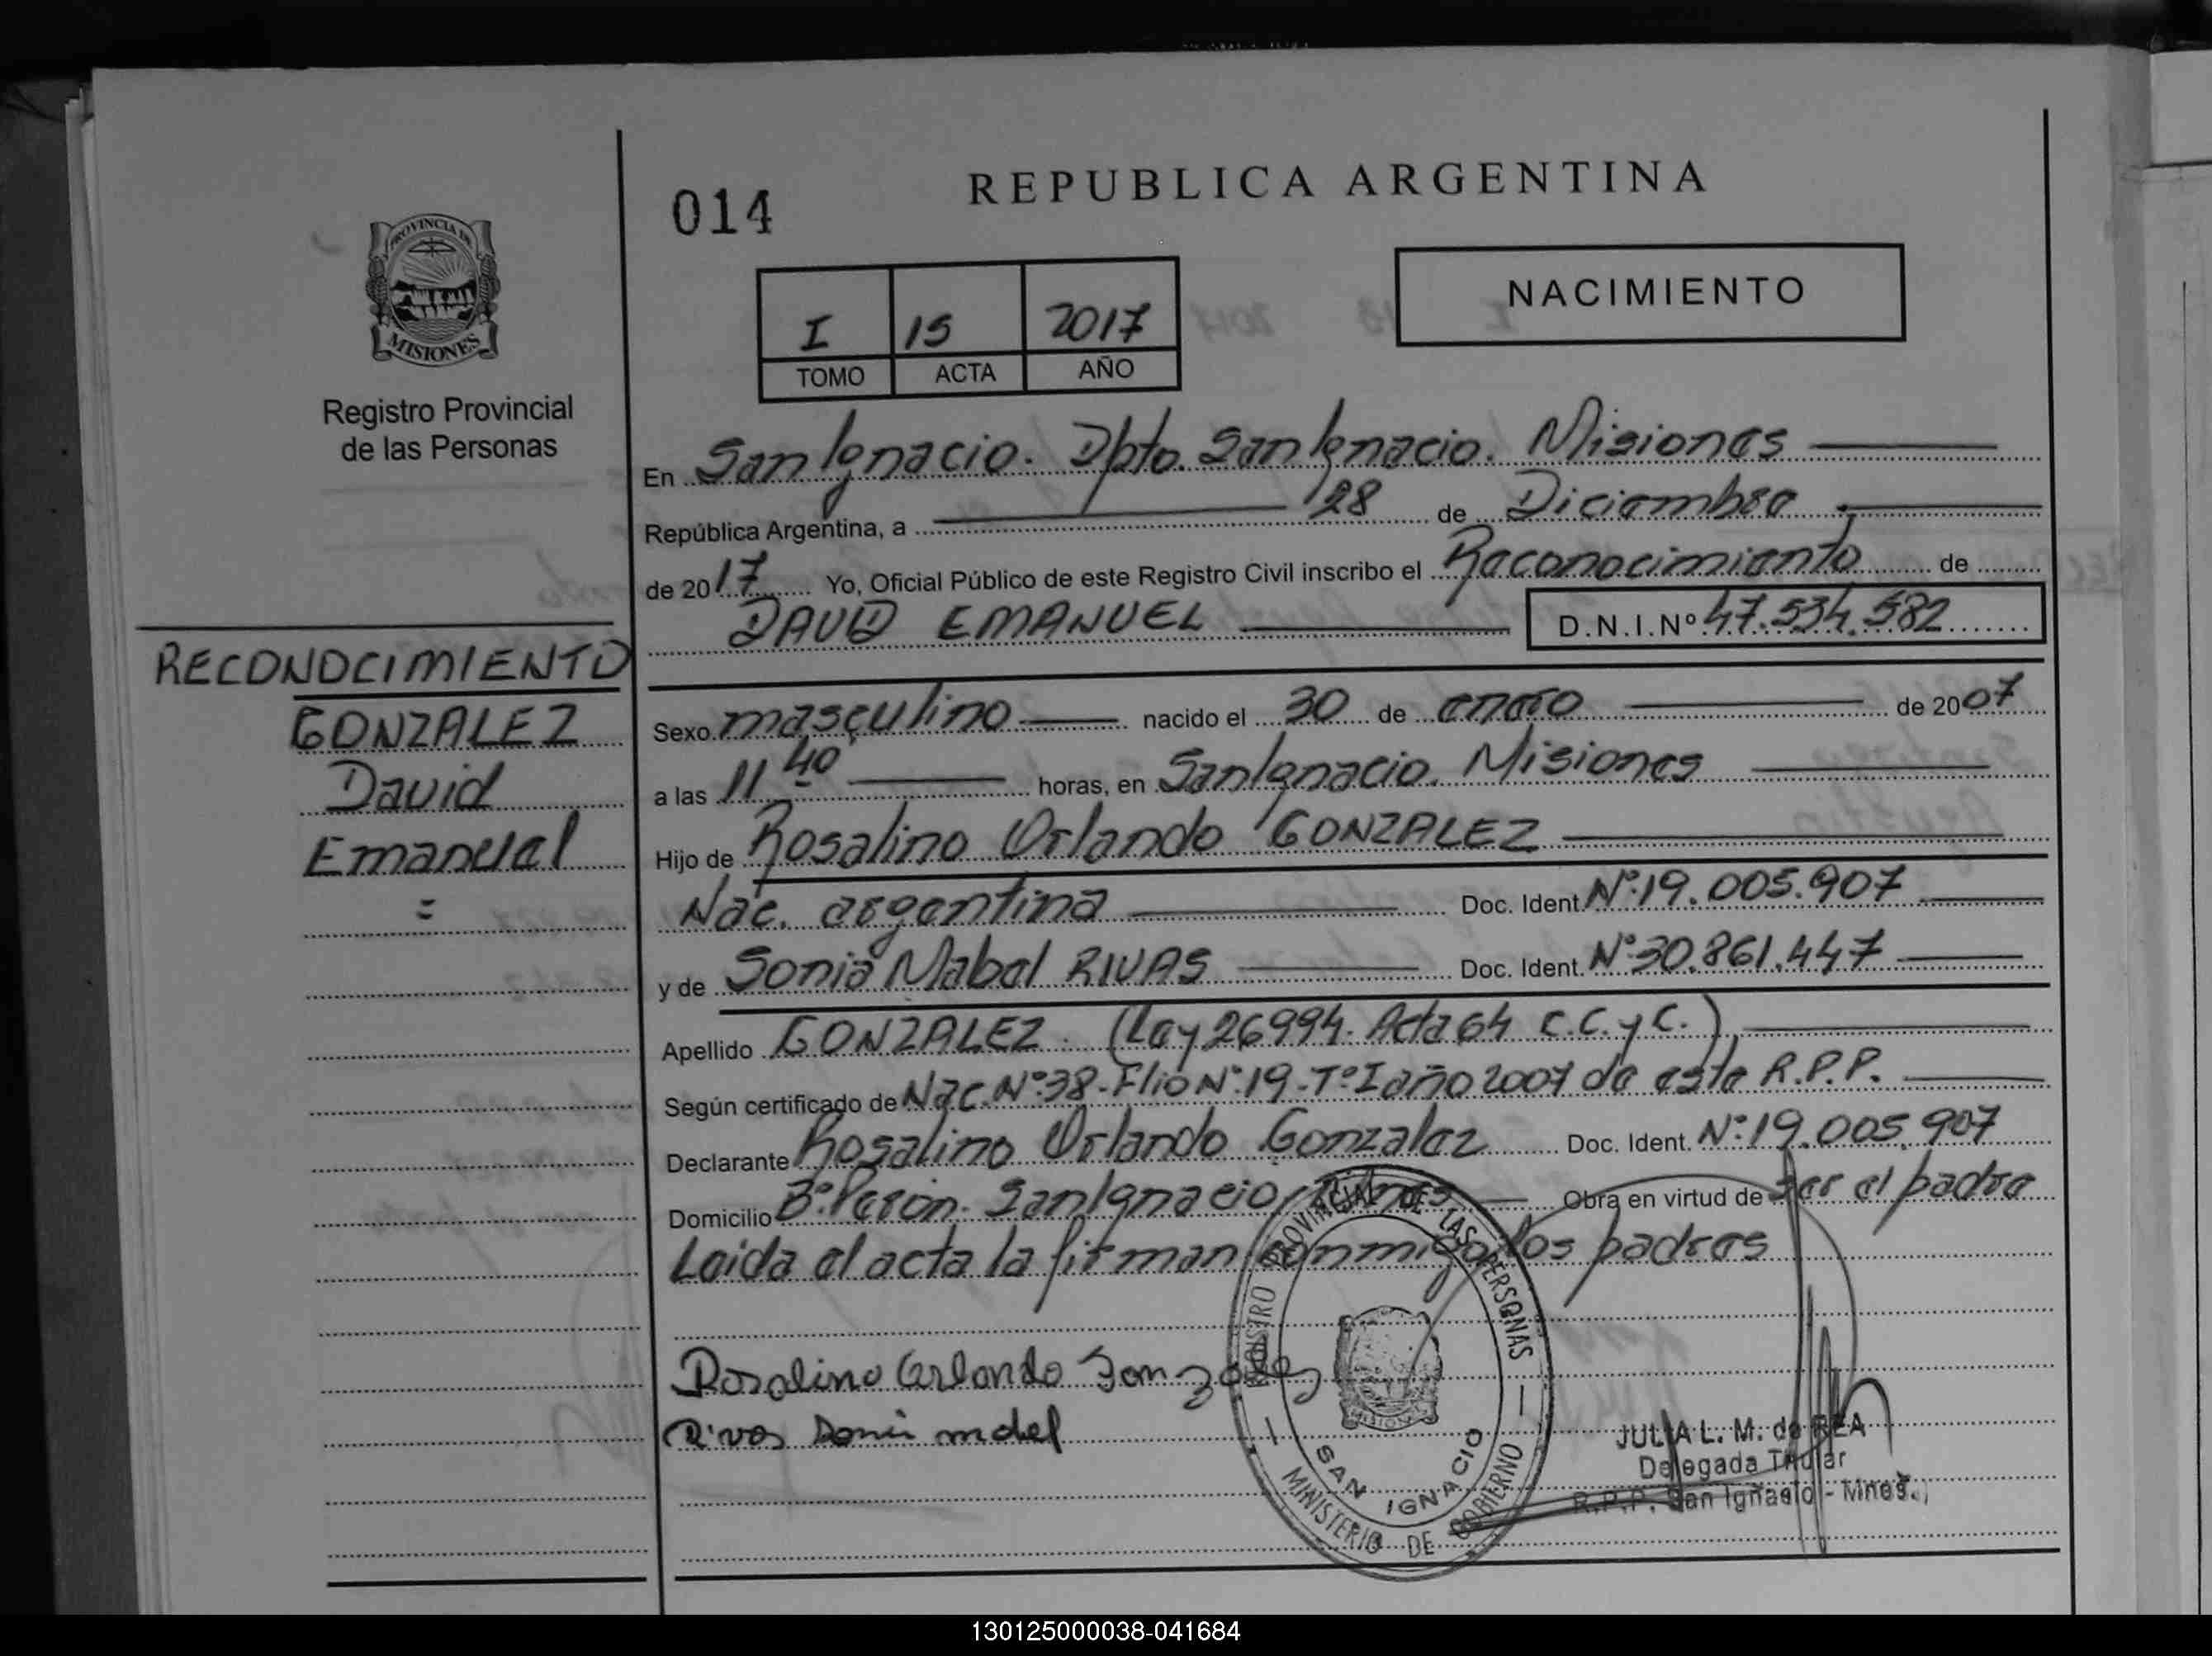 REPUBLICA ARGENTINA
014
NACIMIENTO
I 15 2017
TOMO ACTA AÑO
PROVINCIA DE
MISIONES
Registro Provincial
de las Personas
En San Ignacio. Dpto. San Ignacio. Misiones
República Argentina, a 28 de Diciembre
de 2017 Yo, Oficial Público de este Registro Civil inscribo el Reconocimiento de
DAVID EMANUEL D.N.I.Nº 47.534.582
RECONOCIMIENTO
GONZALEZ
David
Emanuel
=
Sexo masculino nacido el 30 de enero de 2007
a las 11 40 horas, en San Ignacio. Misiones
Hijo de Rosalino Orlando GONZALEZ
Nac. argentina Doc. Ident. Nº:19.005.907
y de Sonia Mabel RIVAS Doc. Ident. Nº:30.861.447
Apellido GONZALEZ. (Ley 26994. Acta 64 C.C.y C.)
Según certificado de Nac. Nº:38-Flio Nº:19-Tº I año 2007 de este R.P.P.
Declarante Rosalino Orlando Gonzalez Doc. Ident. Nº:19.005.907
Domicilio Bº. Perón. San Ignacio. Mnes Obra en virtud de ser el padre
Leida el acta la firman conmigo los padres
Rosalino Orlando Gonzalez
Rivas Sonia
REGISTRO PROVINCIAL DE LAS PERSONAS
MISIONES
SAN IGNACIO
MINISTERIO DE GOBIERNO
JULIA L. M. de REA
Delegada Titular
R.P.P. San Ignacio - Mnes.
130125000038-041684